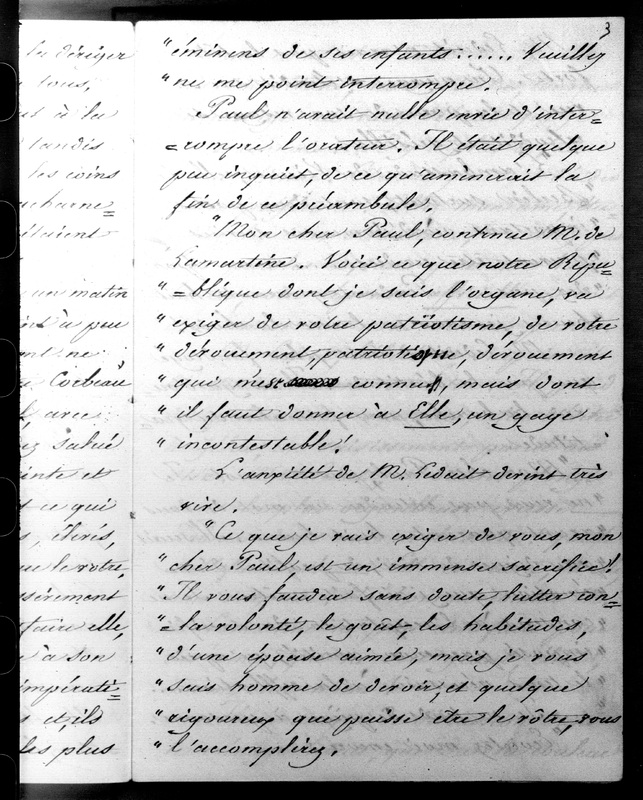 la dériger
à tous,
à la
tandis
les coins
acharne=
un matin
à peu
ne
Corbeau
avec
salué
et
ce qui
élevés,
le votre,
elle,
à son
impérati=
et, ils
les plus
3
" éminens de ses enfants...... Veuillez
" ne me point interrompre.
Paul n'avait nulle envie d'inter=
=rompre l'orateur. Il était quelque
peu inquiet, de ce qu'amènerait la
fin de ce préambule.
"Mon cher Paul, continue M. de
Lamartine. Voici ce que notre Répu=
" =blique dont je suis l'organe, va
" exiger de votre patriotisme, de votre
" dévouement, patriotisme, dévouement
" qui m'est connus, mais dont
" il faut donner à Elle, un gage
" incontestable!
L'anxiété de M. Leduit devint très
vive.
"Ce que je vais exiger de vous, mon
" cher Paul est un immense sacrifice!
" Il vous faudra sans doute, lutter con=
" =la volonté, le goût, les habitudes,
" d'une épouse aimée, mais je vous
" sais homme de devoir, et quelque
" rigoureux que puisse etre le vôtre, vous
" l'accomplirez.